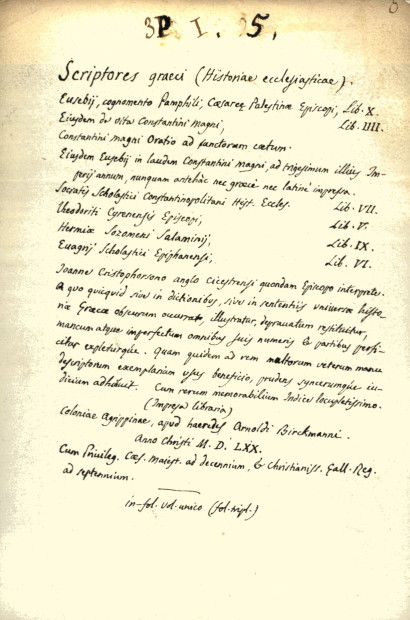 5
3P. I. 5.
Scriptores graeci (Historiae ecclesiasticae).
Eusebij, cognomento Pamphili, Cæsareę Palestinæ Episcopi, Lib. X.
Eiusdem de vita Constantini magni, Lib. IIII.
Constantini magni Oratio ad sanctorum cœtum.
Eiusdem Eusebij in laudem Constantini magni, ad trigesimum illius Im-
perij annum, nunquam antehàc nec græcè nec latinè impressa.
Socratis Scholastici Constantinopolitani Hist. Eccles. Lib. VII.
Theodoriti Cyrensis Episcopi, Lib. V.
Hermiæ Sozomeni Salaminij, Lib. IX.
Evagrij Scholastici Epiphanensis, Lib. VI.
Joanne Cristophorsono anglo Cicestrensi quondam Episcopo interprete.
A quo quicquid sive in dictionibus, sive in sententiis universæ histo-
riæ Græcæ obscurum occurrat, illustratur, depravatum restituitur,
mancum atque imperfectum omnibus suis numeris & partibus perfi-
citur expleturque. Quam quidem ad rem multorum veterum manu
descriptorum exemplarium usus beneficio, prudens syncerumque iu-
dicium adhibuit. Cum rerum memorabilium Indice locupletissimo.
(Impresa libraria)
Coloniae Agrippinae, apud haeredes Arnoldi Birckmanni.
Anno Christi M. D. LXX.
Cum Privileg. Cæs. Maiest. ad decennium, & Christianiss. Gall. Reg.
ad septennium.
in-fol. vol. unico (fol. tripl.)